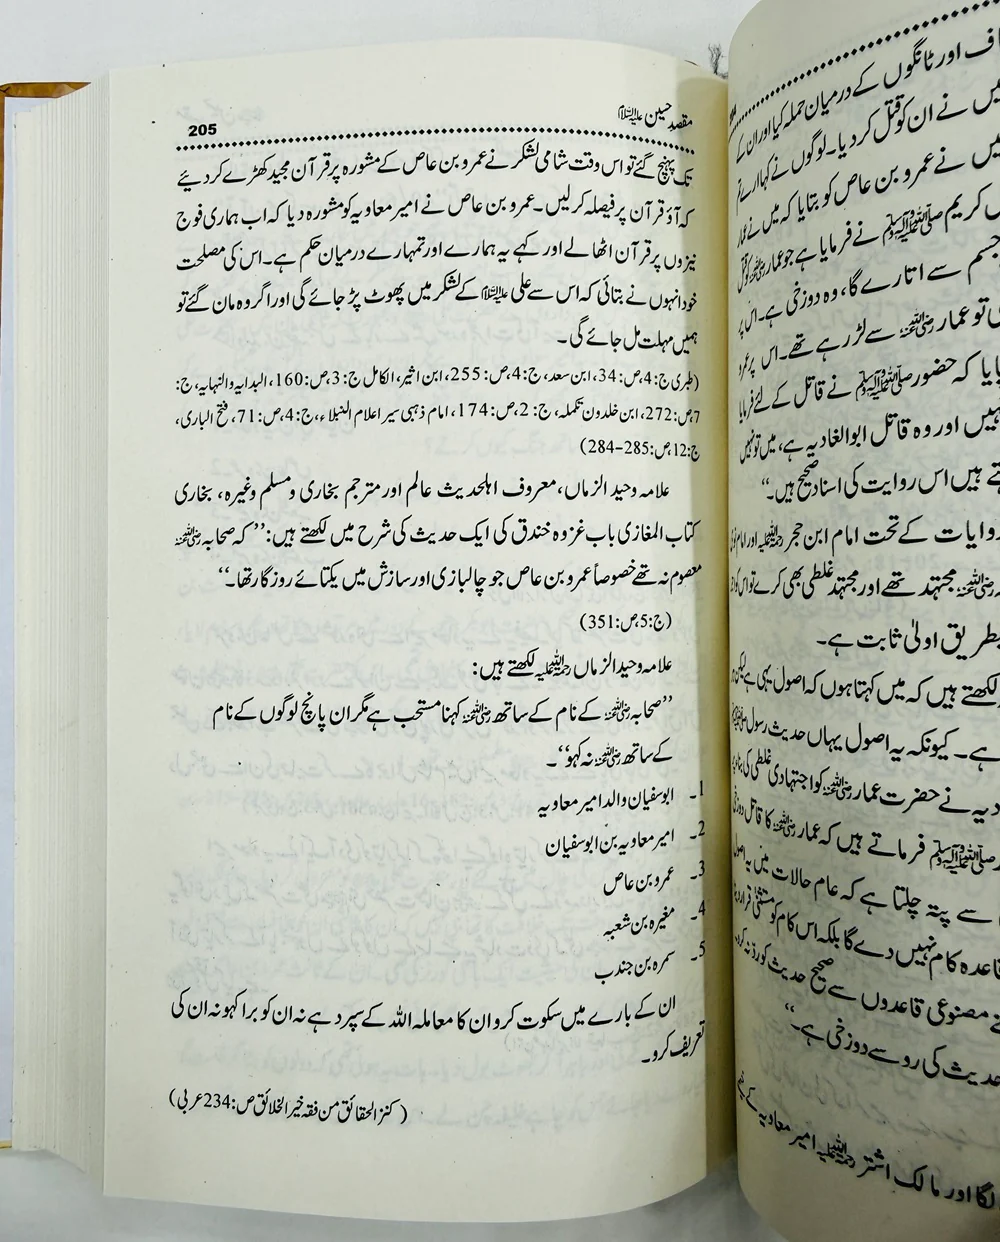 مقصدِ حسین علیہ السلام
205
تک پہنچ گئے تو اس وقت شامی لشکر نے عمرو بن عاص کے مشورہ پر قرآن مجید کھڑے کر دیئے
کہ آؤ قرآن پر فیصلہ کر لیں۔ عمرو بن عاص نے امیر معاویہ کو مشورہ دیا کہ اب ہماری فوج
نیزوں پر قرآن اٹھا لے اور کہے یہ ہمارے اور تمہارے درمیان حکم ہے۔ اس کی مصلحت
خود انہوں نے بتائی کہ اس سے علی علیہ السلام کے لشکر میں پھوٹ پڑ جائے گی اور اگر وہ مان گئے تو
ہمیں مہلت مل جائے گی۔
(طبری ج:4،ص:34، ابن سعد، ج:4،ص:255، ابن اثیر، الکامل ج:3،ص:160، البدایہ والنہایہ، ج:
7،ص:272، ابن خلدون تکملہ، ج:2،ص:174، امام ذہبی سیر اعلام النبلاء، ج:4،ص:71، فتح الباری،
ج:12،ص:285-284)
علامہ وحید الزماں، معروف اہلحدیث عالم اور مترجم بخاری و مسلم وغیرہ، بخاری
کتاب المغازی باب غزوہ خندق کی ایک حدیث کی شرح میں لکھتے ہیں: ’’کہ صحابہ رضی اللہ عنہم
معصوم نہ تھے خصوصاً عمرو بن عاص جو چالبازی اور سازش میں یکتائے روزگار تھا۔‘‘
(ج:5،ص:351)
علامہ وحید الزماں رحمۃ اللہ علیہ لکھتے ہیں:
’’صحابہ رضی اللہ عنہم کے نام کے ساتھ رضی اللہ عنہ کہنا مستحب ہے مگر ان پانچ لوگوں کے نام
کے ساتھ رضی اللہ عنہ نہ کہو‘‘۔
1۔ ابوسفیان والد امیر معاویہ
2۔ امیر معاویہ بن ابوسفیان
3۔ عمرو بن عاص
4۔ مغیرہ بن شعبہ
5۔ سمرہ بن جندب
ان کے بارے میں سکوت کرو ان کا معاملہ اللہ کے سپرد ہے نہ ان کو برا کہو نہ ان کی
تعریف کرو۔
(کنز الحقائق من فقہ خیر الخلائق ص:234 عربی)
اور ٹانگوں کے درمیان حملہ کیا اور ان کے
نے ان کو قتل کر دیا۔ لوگوں نے کہا ارے تم
نے عمرو بن عاص کو بتایا کہ میں نے عمار
کریم صلی اللہ علیہ وآلہ وسلم نے فرمایا ہے جو عمار رضی اللہ عنہ کو قتل
جسم سے اتارے گا، وہ دوزخی ہے۔ اس پر
تو عمار رضی اللہ عنہ سے لڑ رہے تھے۔ اس پر عمرو
کہ حضور صلی اللہ علیہ وآلہ وسلم نے قاتل کے لئے فرمایا
اور وہ قاتل ابوالغادیہ ہے، میں تو نہیں
ہیں اس روایت کی اسناد صحیح ہیں۔‘‘
روایات کے تحت امام ابن حجر رحمۃ اللہ علیہ اور امام
رضی اللہ عنہ مجتہد تھے اور مجتہد غلطی بھی کرے تو اس کو
بطریق اولیٰ ثابت ہے۔
لکھتے ہیں کہ میں کہتا ہوں کہ اصول یہی ہے لیکن
ہے۔ کیونکہ یہ اصول یہاں حدیث رسول
نے حضرت عمار رضی اللہ عنہ کو اجتہادی غلطی کی بنا پر
صلی اللہ علیہ وآلہ وسلم فرماتے ہیں کہ عمار رضی اللہ عنہ کا قاتل دوزخی
سے پتہ چلتا ہے کہ عام حالات میں یہ اصول
قاعدہ کام نہیں دے گا بلکہ اس کام کو مستثنیٰ قرار
مصنوعی قاعدوں سے صحیح حدیث کو رد نہ کرو
حدیث کی رو سے دوزخی ہے۔‘‘
لگا اور مالک اشتر رحمۃ اللہ علیہ امیر معاویہ کے